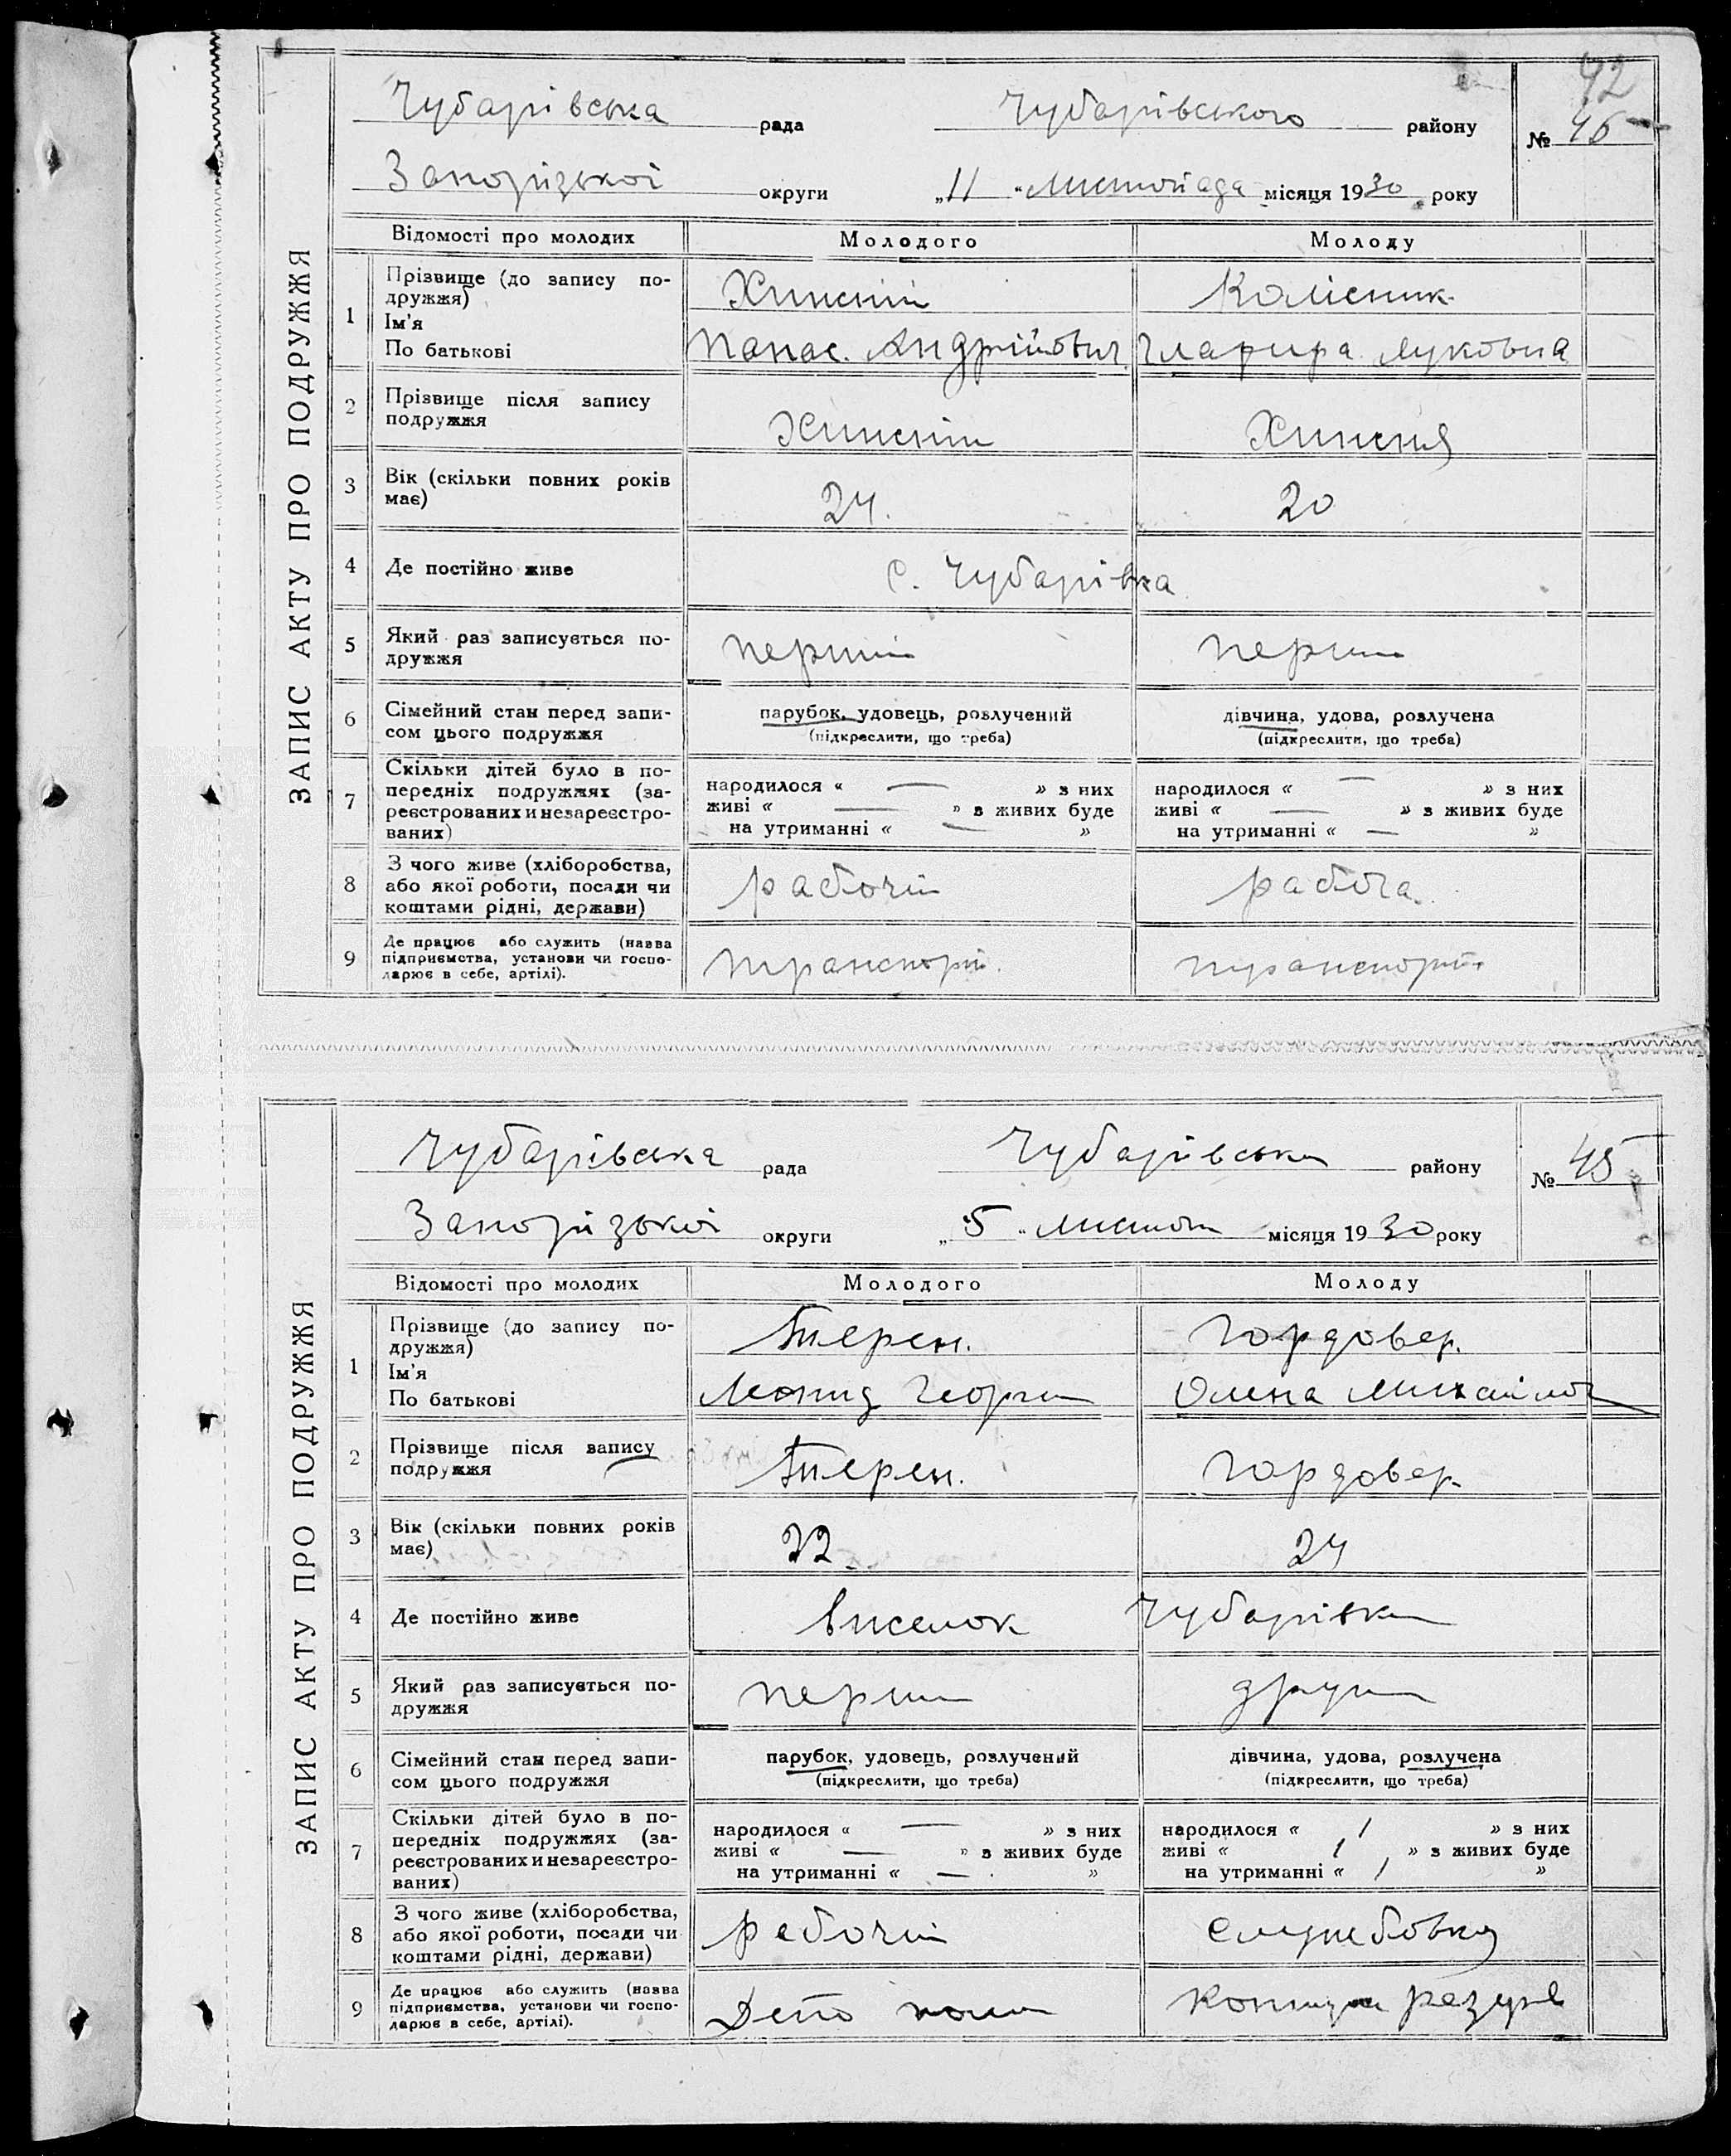 42
Чубарівська рада Чубарівського району № 46
Запорізької округи „11“ Листопада місяця 1930 року
ЗАПИС АКТУ ПРО ПОДРУЖЖЯ
Відомості про молодих Молодого Молоду
1 Прізвище (до запису по-
дружжя)
Колісник
Ім'я
По батькові
Панас Андрійович Луковна
2 Прізвище після запису
подружжя
3 Вік (скільки повних років
має)
24. 20
4 Де постійно живе с. Чубарівка
5 Який раз записується по-
дружжя
перший перши
6 Сімейний стан перед запи-
сом цього подружжя
парубок, удовець, розлучений дівчина, удова, розлучена
(підкреслити, що треба) (підкреслити, що треба)
7 Скільки дітей було в по-
передніх подружжях (за-
реєстрованих и незареєстро-
ваних)
народилося « — » з них народилося « — » з них
живі « — » з живих буде живі « — » з живих буде
на утриманні « — » на утриманні « — »
8 З чого живе (хліборобства,
або якої роботи, посади чи
коштами рідні, держави)
рабочий рабоча
9 Де працює або служить (назва
підприємства, установи чи госпо-
дарює в себе, артілі).
транспорт. транспорт
Чубарівська рада Чубарівськи району № 45
Запорізької округи „5“ листоп місяця 1930 року
ЗАПИС АКТУ ПРО ПОДРУЖЖЯ
Відомості про молодих Молодого Молоду
1 Прізвище (до запису по-
дружжя)
Гордовер.
Ім'я
По батькові
Леонид Георги Олена Михайлов
2 Прізвище після запису
подружжя
Гордовер
3 Вік (скільки повних років
має)
22 24
4 Де постійно живе Виселок Чубарівка
5 Який раз записується по-
дружжя
перши други
6 Сімейний стан перед запи-
сом цього подружжя
парубок, удовець, розлучений дівчина, удова, розлучена
(підкреслити, що треба) (підкреслити, що треба)
7 Скільки дітей було в по-
передніх подружжях (за-
реєстрованих и незареєстро-
ваних)
народилося « — » з них народилося « 1 » з них
живі « — » з живих буде живі « 1 » з живих буде
на утриманні « — » на утриманні « 1 »
8 З чого живе (хліборобства,
або якої роботи, посади чи
коштами рідні, держави)
рабочий службовка
9 Де працює або служить (назва
підприємства, установи чи госпо-
дарює в себе, артілі).
Депо